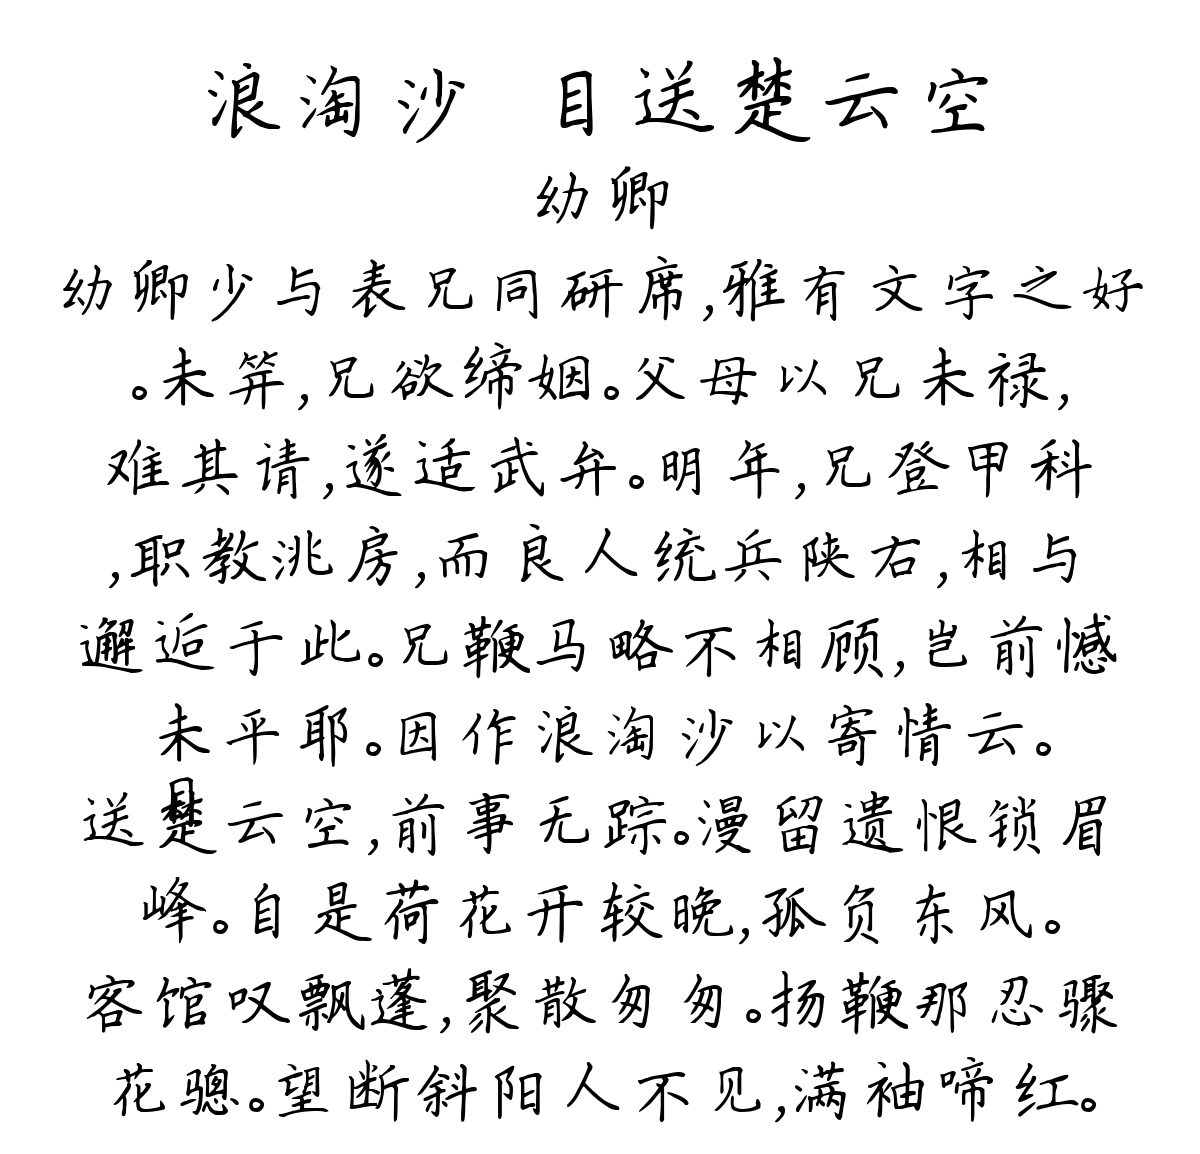 浪淘沙 目送楚云空
幼卿
幼卿少与表兄同研席,雅有文字之好
。未笄,兄欲缔姻。父母以兄未禄,
难其请,遂适武弁。明年,兄登甲科
,职教洮房,而良人统兵陕右,相与
邂逅于此。兄鞭马略不相顾,岂前憾
未平耶。因作浪淘沙以寄情云。
目送楚云空,前事无踪。漫留遗恨锁眉
峰。自是荷花开较晚,孤负东风。
客馆叹飘蓬,聚散匆匆。扬鞭那忍骤
花骢。望断斜阳人不见,满袖啼红。